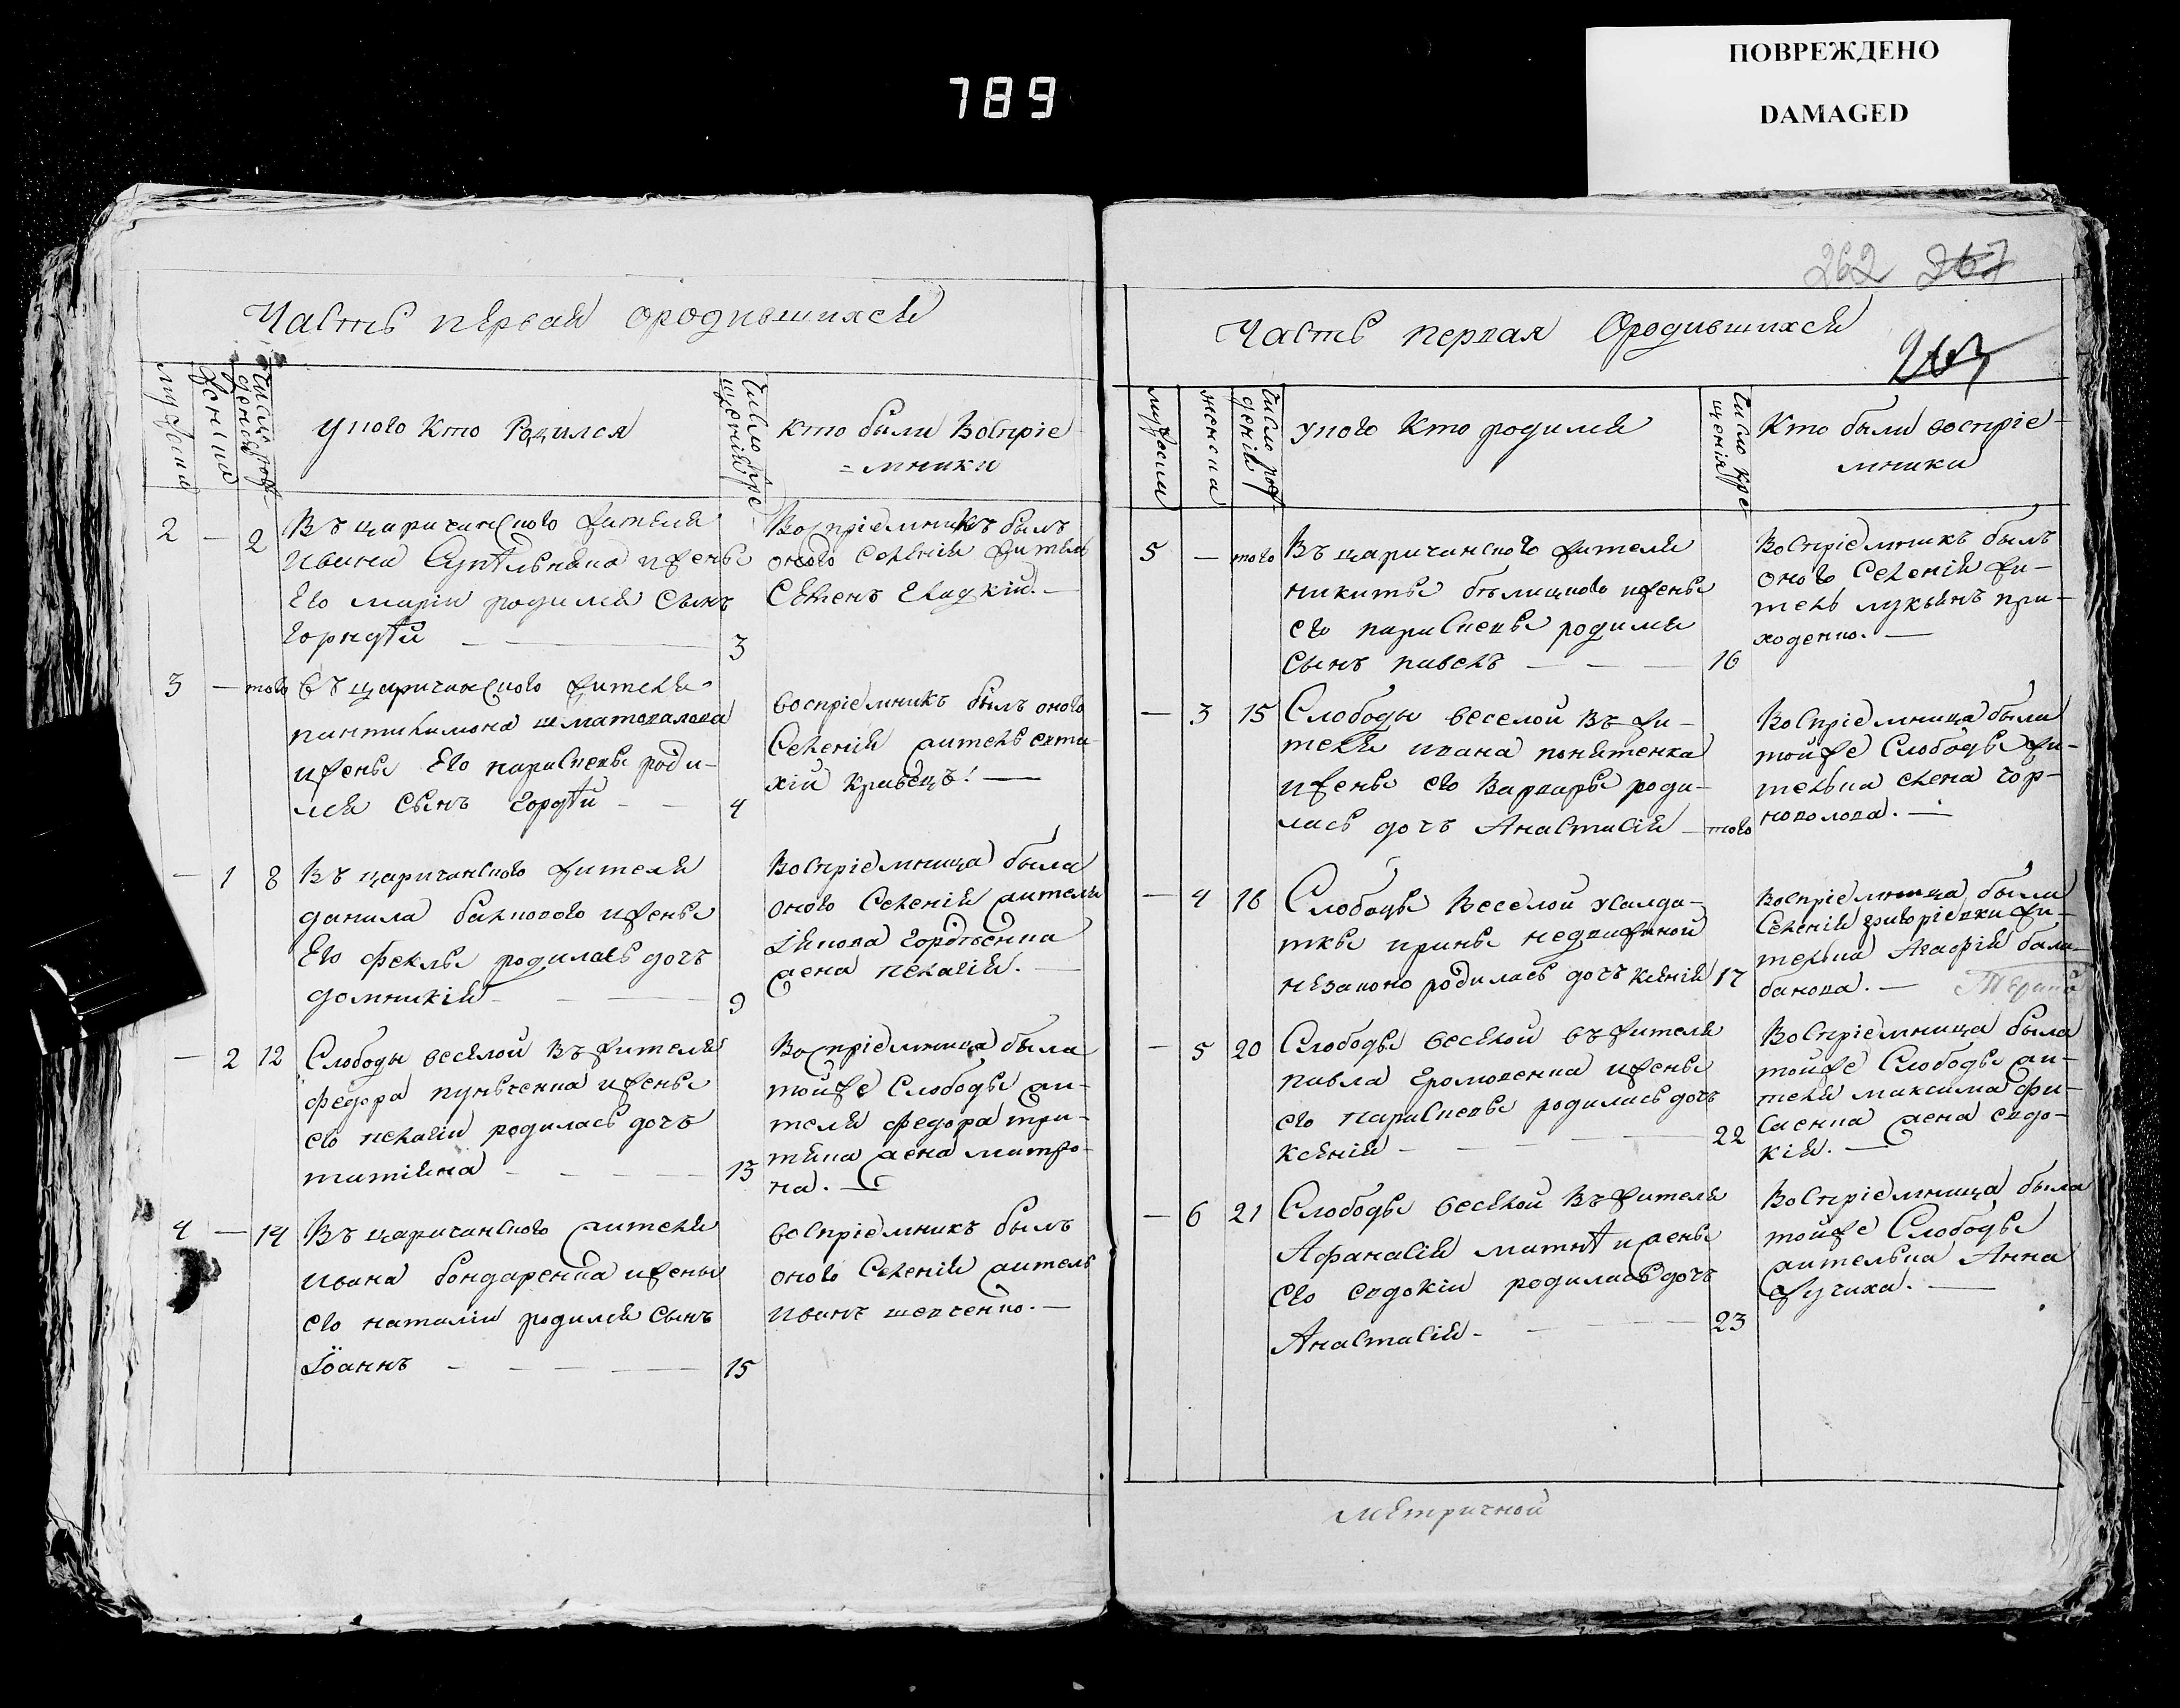 ПОВРЕЖДЕНО
DAMAGED
789
Часть первая ородившихся
мужеска
женска
Число рож
деній
у кого кто Родился
Число кре
щеній
кто были Воспріе
= мники
2 — 2
Въ царичанского жителя
Ивана и жены
Его маріи родился сынъ
3
Воспріемникъ былъ
оного селенія житель
3 — того
въ царичанского жителя
пантилимона
и жены Его параскевы роди-
лся сынъ Гордѣй
4
воспріемникъ былъ оного
Селенія житель евти-
хій Кравецъ. —
— 1 8
Въ царичанского жителя
данила и жены
Его феклы родилась дочъ
домникія
9
Воспріемница была
оного Селенія жителя
жена пелагія. —
— 2 12
Слободы веселой въ жителя
федора и жены
его пелагіи родилась дочъ
татіяна
13
Воспріемница была
тойже Слободы жи-
теля федора
жена матро-
на. —
4 — 14
Въ царичанского жителя
Ивана бондаренка и жены
его наталіи родился сынъ
Іоаннъ
15
воспріемникъ былъ
оного Селенія житель
Иванъ шевченко. —
262 267
263
Часть первая Ородившихся
мужеска
женска
Число рож
деній
у кого кто родился
Число кре
щенія
Кто были воспріе-
мники
5 — того
Въ царичанского жителя
никиты и жены
его параскевы родился
сынъ павелъ
16
Воспріемникъ былъ
оного Селенія жи-
тель лукьянъ при-
ходенко. —
— 3 15
Слободы веселой въ жи-
теля ивана
и жены его Варвары роди-
лась дочъ Анастасія
того
Воспріемница была
тойже Слободы жи-
телька елена чор-
новолова. —
— 4 16
Слободы Веселой
ирины
незаконо родилась дочъ ксенія
17
Воспріемница была
Селенія григоріевки жи-
телька Агафія бала-
банова. —
— 5 20
Слободы веселой въ жителя
павла и жены
его параскевы родилась дочъ
ксенія
22
Воспріемница была
тойже Слободы жи-
теля максима
жена евдо-
кія. —
— 6 21
Слободы веселой въ жителя
Афанасія и жены
его евдокіи родилась дочъ
Анастасія
23
Воспріемница была
тойже Слободы
жителька Анна
метричной